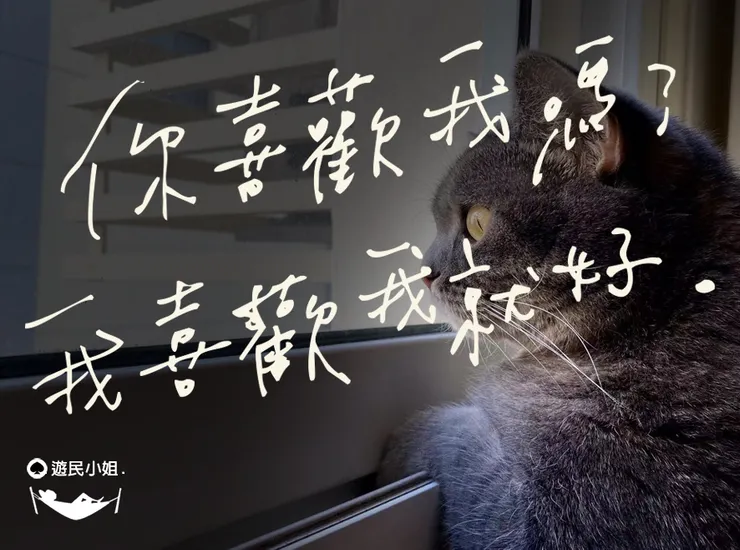 你喜歡我嗎?
我喜歡我就好.
遊民小姐.